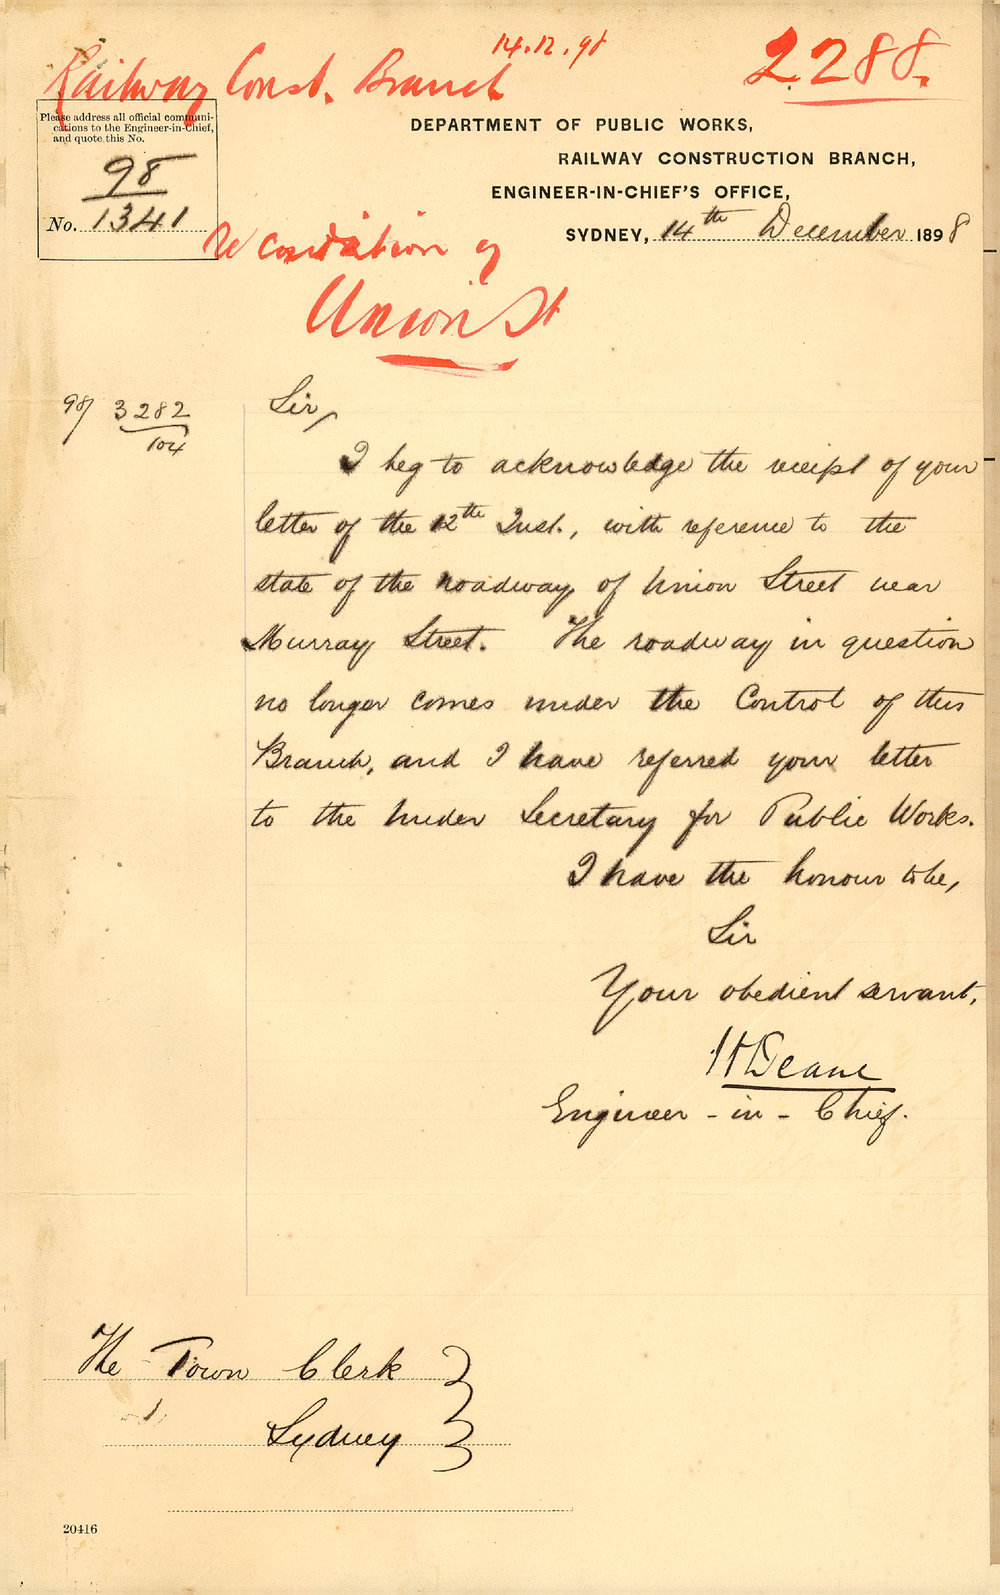 14.12.98
2288.
Railway Const. Branch
Please address all official communi-
cations to the Engineer-in-Chief,
and quote this No.
98
No. 1341
DEPARTMENT OF PUBLIC WORKS,
RAILWAY CONSTRUCTION BRANCH,
ENGINEER-IN-CHIEF'S OFFICE,
SYDNEY, 14th December 1898
re Condition of
Union St
98/3282
104
Sir,
I beg to acknowledge the receipt of your
letter of the 12th Inst., with reference to the
state of the roadway of Union Street near
Murray Street. The roadway in question
no longer comes under the Control of this
Branch, and I have referred your letter
to the Under Secretary for Public Works.
I have the honour to be,
Sir
Your obedient servant,
H Deane
Engineer-in-Chief.
The Town Clerk
Sydney
20416